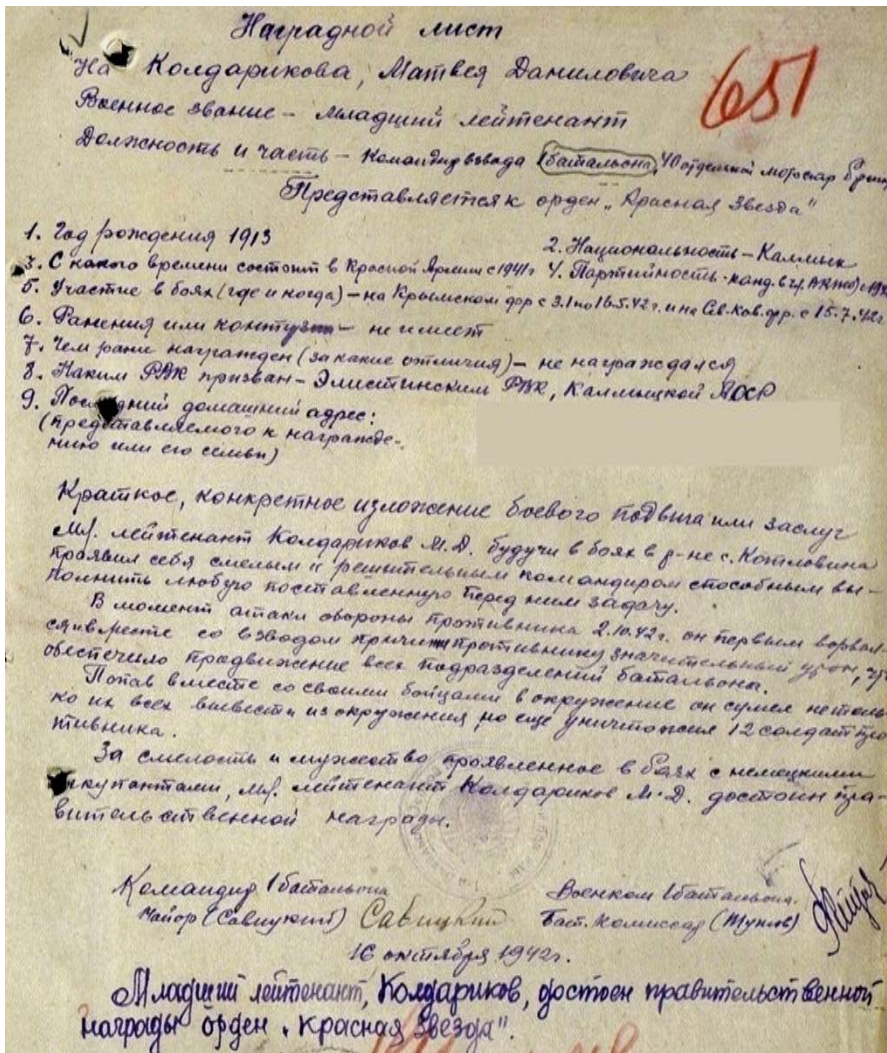 Наградной лист
651
На Колдарикова, Матвея Даниловича
Военное звание – Младший лейтенант
Должность и часть – Командир взвода 1 батальона, 40 отдельной мотострар
Представляется к орден „Красная Звезда"
1. Год рождения 1913
2. Национальность – Калмык
3. С какого времени состоит в Красной Армии с 1941г
4. Партийность - канд. в чл.
5. Участие в боях (где и когда) – на Крымском фр с 3.1 по 16.5.42г. и на Сев-Кав. фр. с 15.7.42г.
6. Ранения или контузии – не имеет
7. Чем ранее награжден (за какие отличия) – не награждался
8. Каким РВК призван – Элистинским РВК, Калмыцкой АССР
9. Последний домашний адрес:
(представляемого к награжде-
нию или его семьи)
Краткое, конкретное изложение боевого подвига или заслуг
Мл. лейтенант Колдариков М.Д. будучи в боях в р-не с. Котловина
проявил себя смелым и решительным командиром способным вы-
полнить любую поставленную перед ним задачу.
В момент атаки обороны противника 2.10.42г. он первым ворвал-
ся вместе со взводом причинил противнику значительный урон,
обеспечило продвижение всех подразделений батальона.
Попав вместе со своими бойцами в окружение он сумел не толь-
ко их всех вывести из окружения, но еще уничтожил 12 солдат про
тивника.
За смелость и мужество проявленное в боях с немецкими
оккупантами, мл. лейтенант Колдариков М.Д. достоин пра-
вительственной награды.
Командир 1 батальона
Военком 1 батальона.
Майор (Савицкий) Савицкий
Бат. Комиссар (Жуков)
16 октября 1942г.
Младший лейтенант, Колдариков, достоен правительственной
награды орден „Красная Звезда".